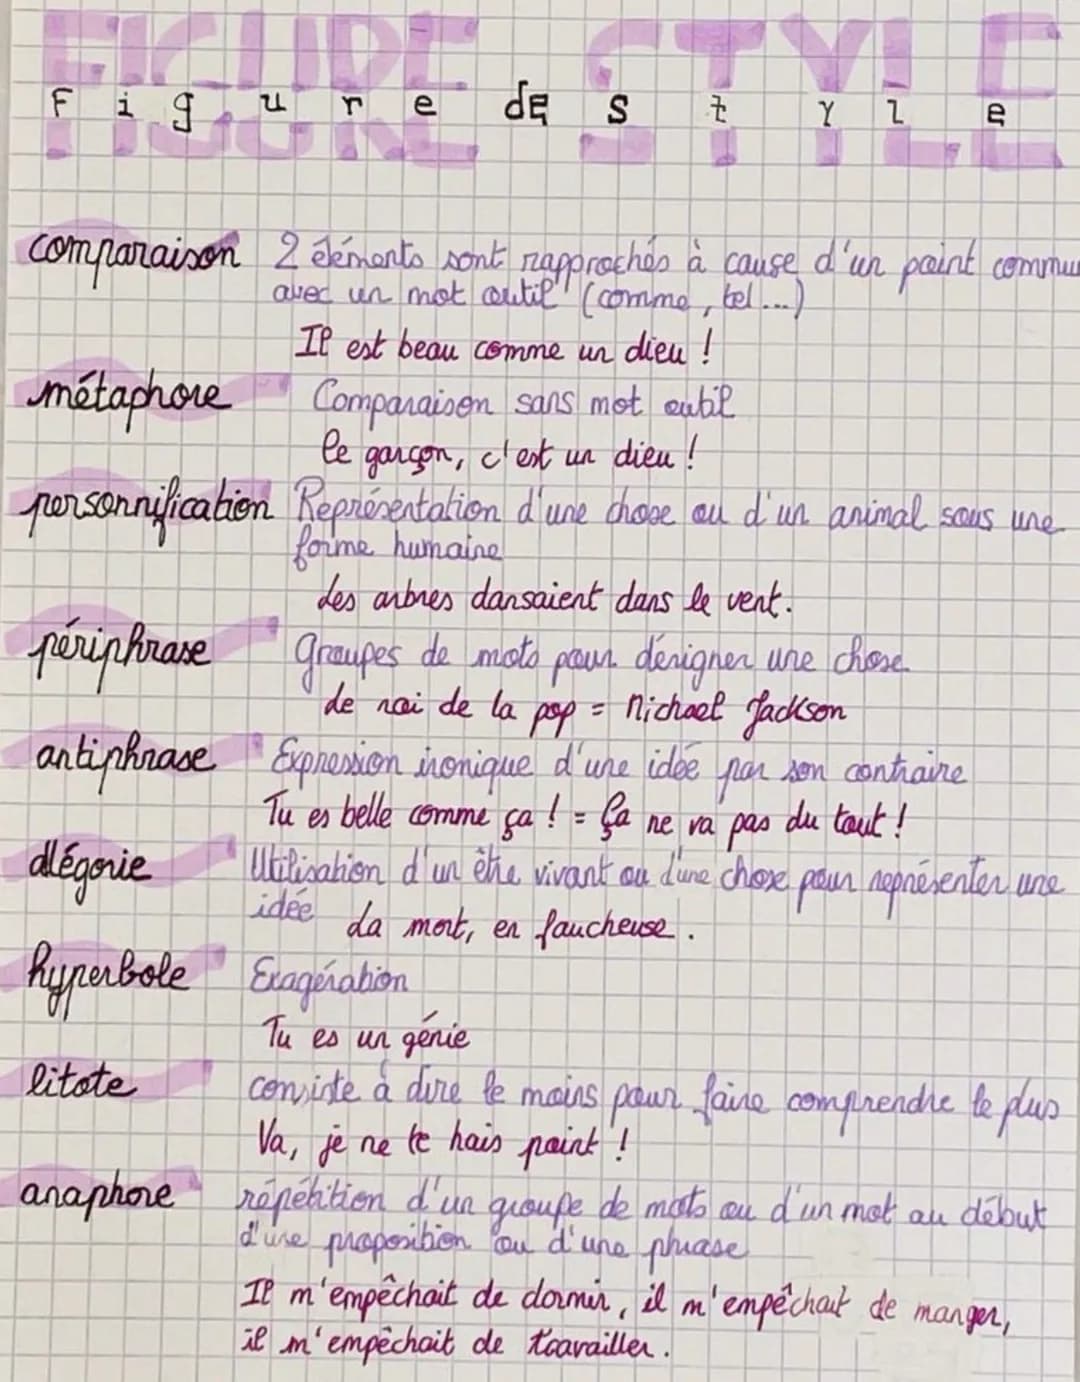 FIGURE STYLE
Figure de style
comparaison 2 éléments sont rapprochés à cause d'un point commun
avec un mot outil (comme, tel...)
Il est beau comme un dieu !
métaphore Comparaison sans mot outil
le garçon, c'est un dieu !
personnification Représentation d'une chose ou d'un animal sous une
forme humaine
Les arbres dansaient dans le vent.
périphrase Groupes de mots pour désigner une chose
Le roi de la pop = Michael Jackson
antiphrase Expression ironique d'une idée par son contraire
Tu es belle comme ça ! = Ça ne va pas du tout !
allégorie Utilisation d'un être vivant ou d'une chose pour représenter une
idée
La mort, en faucheuse.
hyperbole Exagération
Tu es un génie
litote consiste à dire le moins pour faire comprendre le plus
Va, je ne te hais point !
anaphore répétition d'un groupe de mots ou d'un mot au début
d'une proposition ou d'une phrase
Il m'empêchait de dormir, il m'empêchait de manger,
il m'empêchait de travailler.